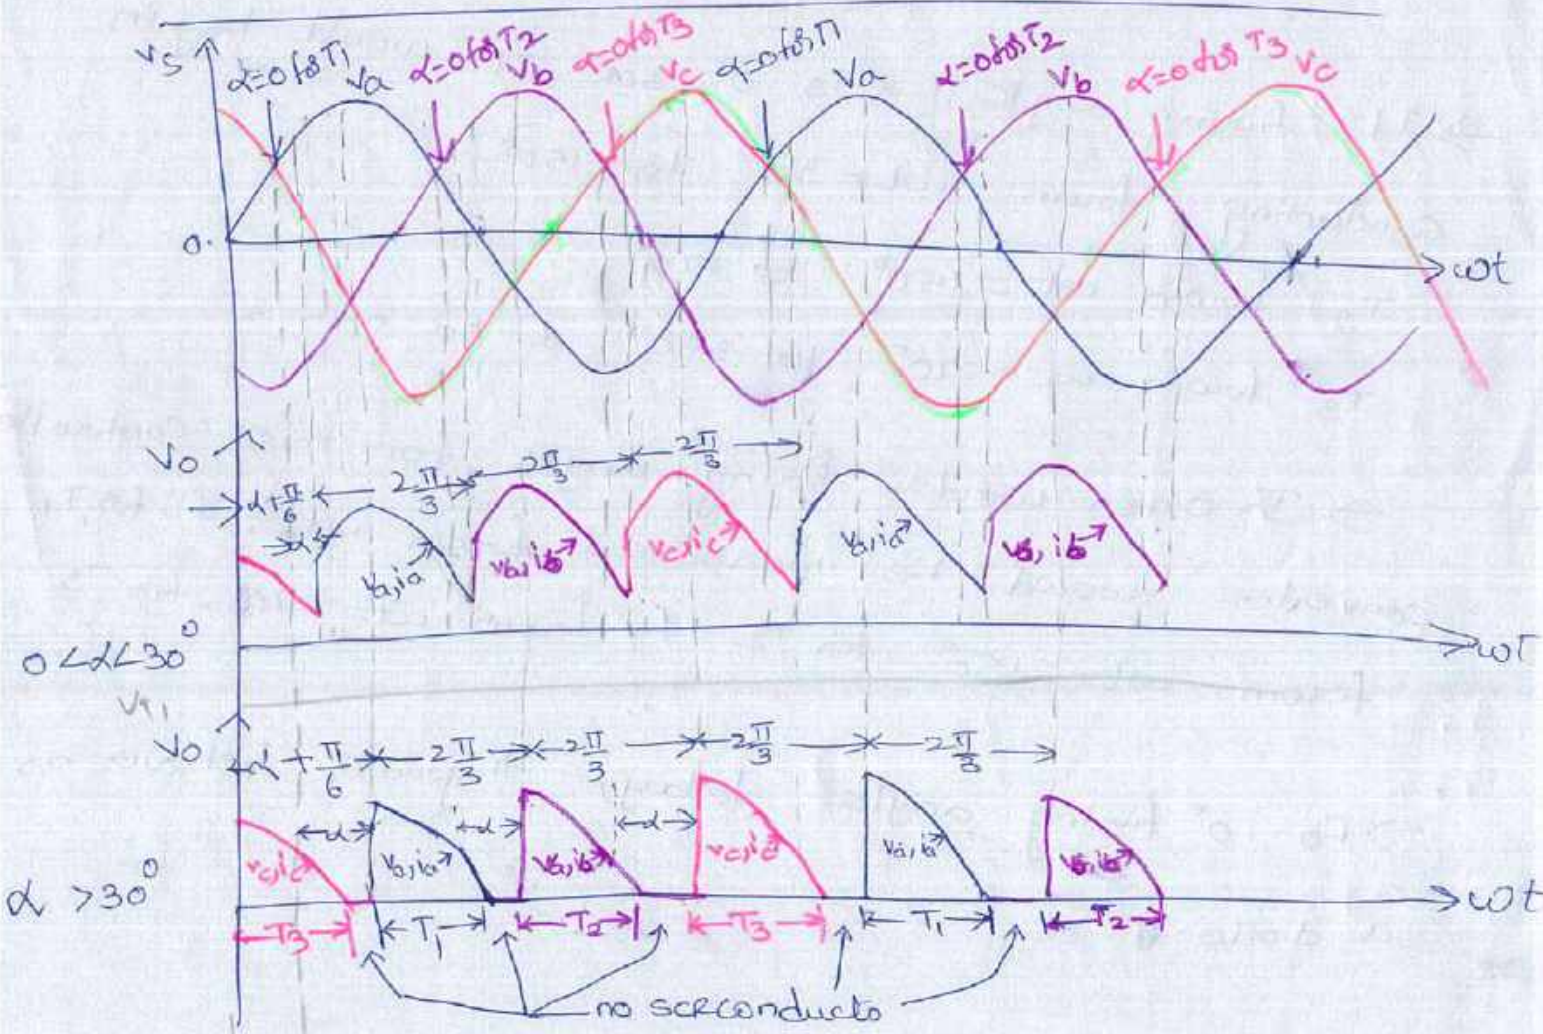 Vs
α=0 for T1
Va
α=0 for T2
Vb
α=0 for T3
Vc
α=0 for T1
Va
α=0 for T2
Vb
α=0 for T3
Vc
0
ωt
Vo
α+π/6
2π/3
2π/3
2π/3
α
va,ia
vb,ib
vc,ic
va,ia
vb,ib
0<α<30°
ωt
Vo
α+π/6
2π/3
2π/3
2π/3
2π/3
α
α
α
vc,ic
va,ia
vb,ib
vc,ic
va,ia
vb,ib
α >30°
ωt
T3
T1
T2
T3
T1
T2
no SCR conducts